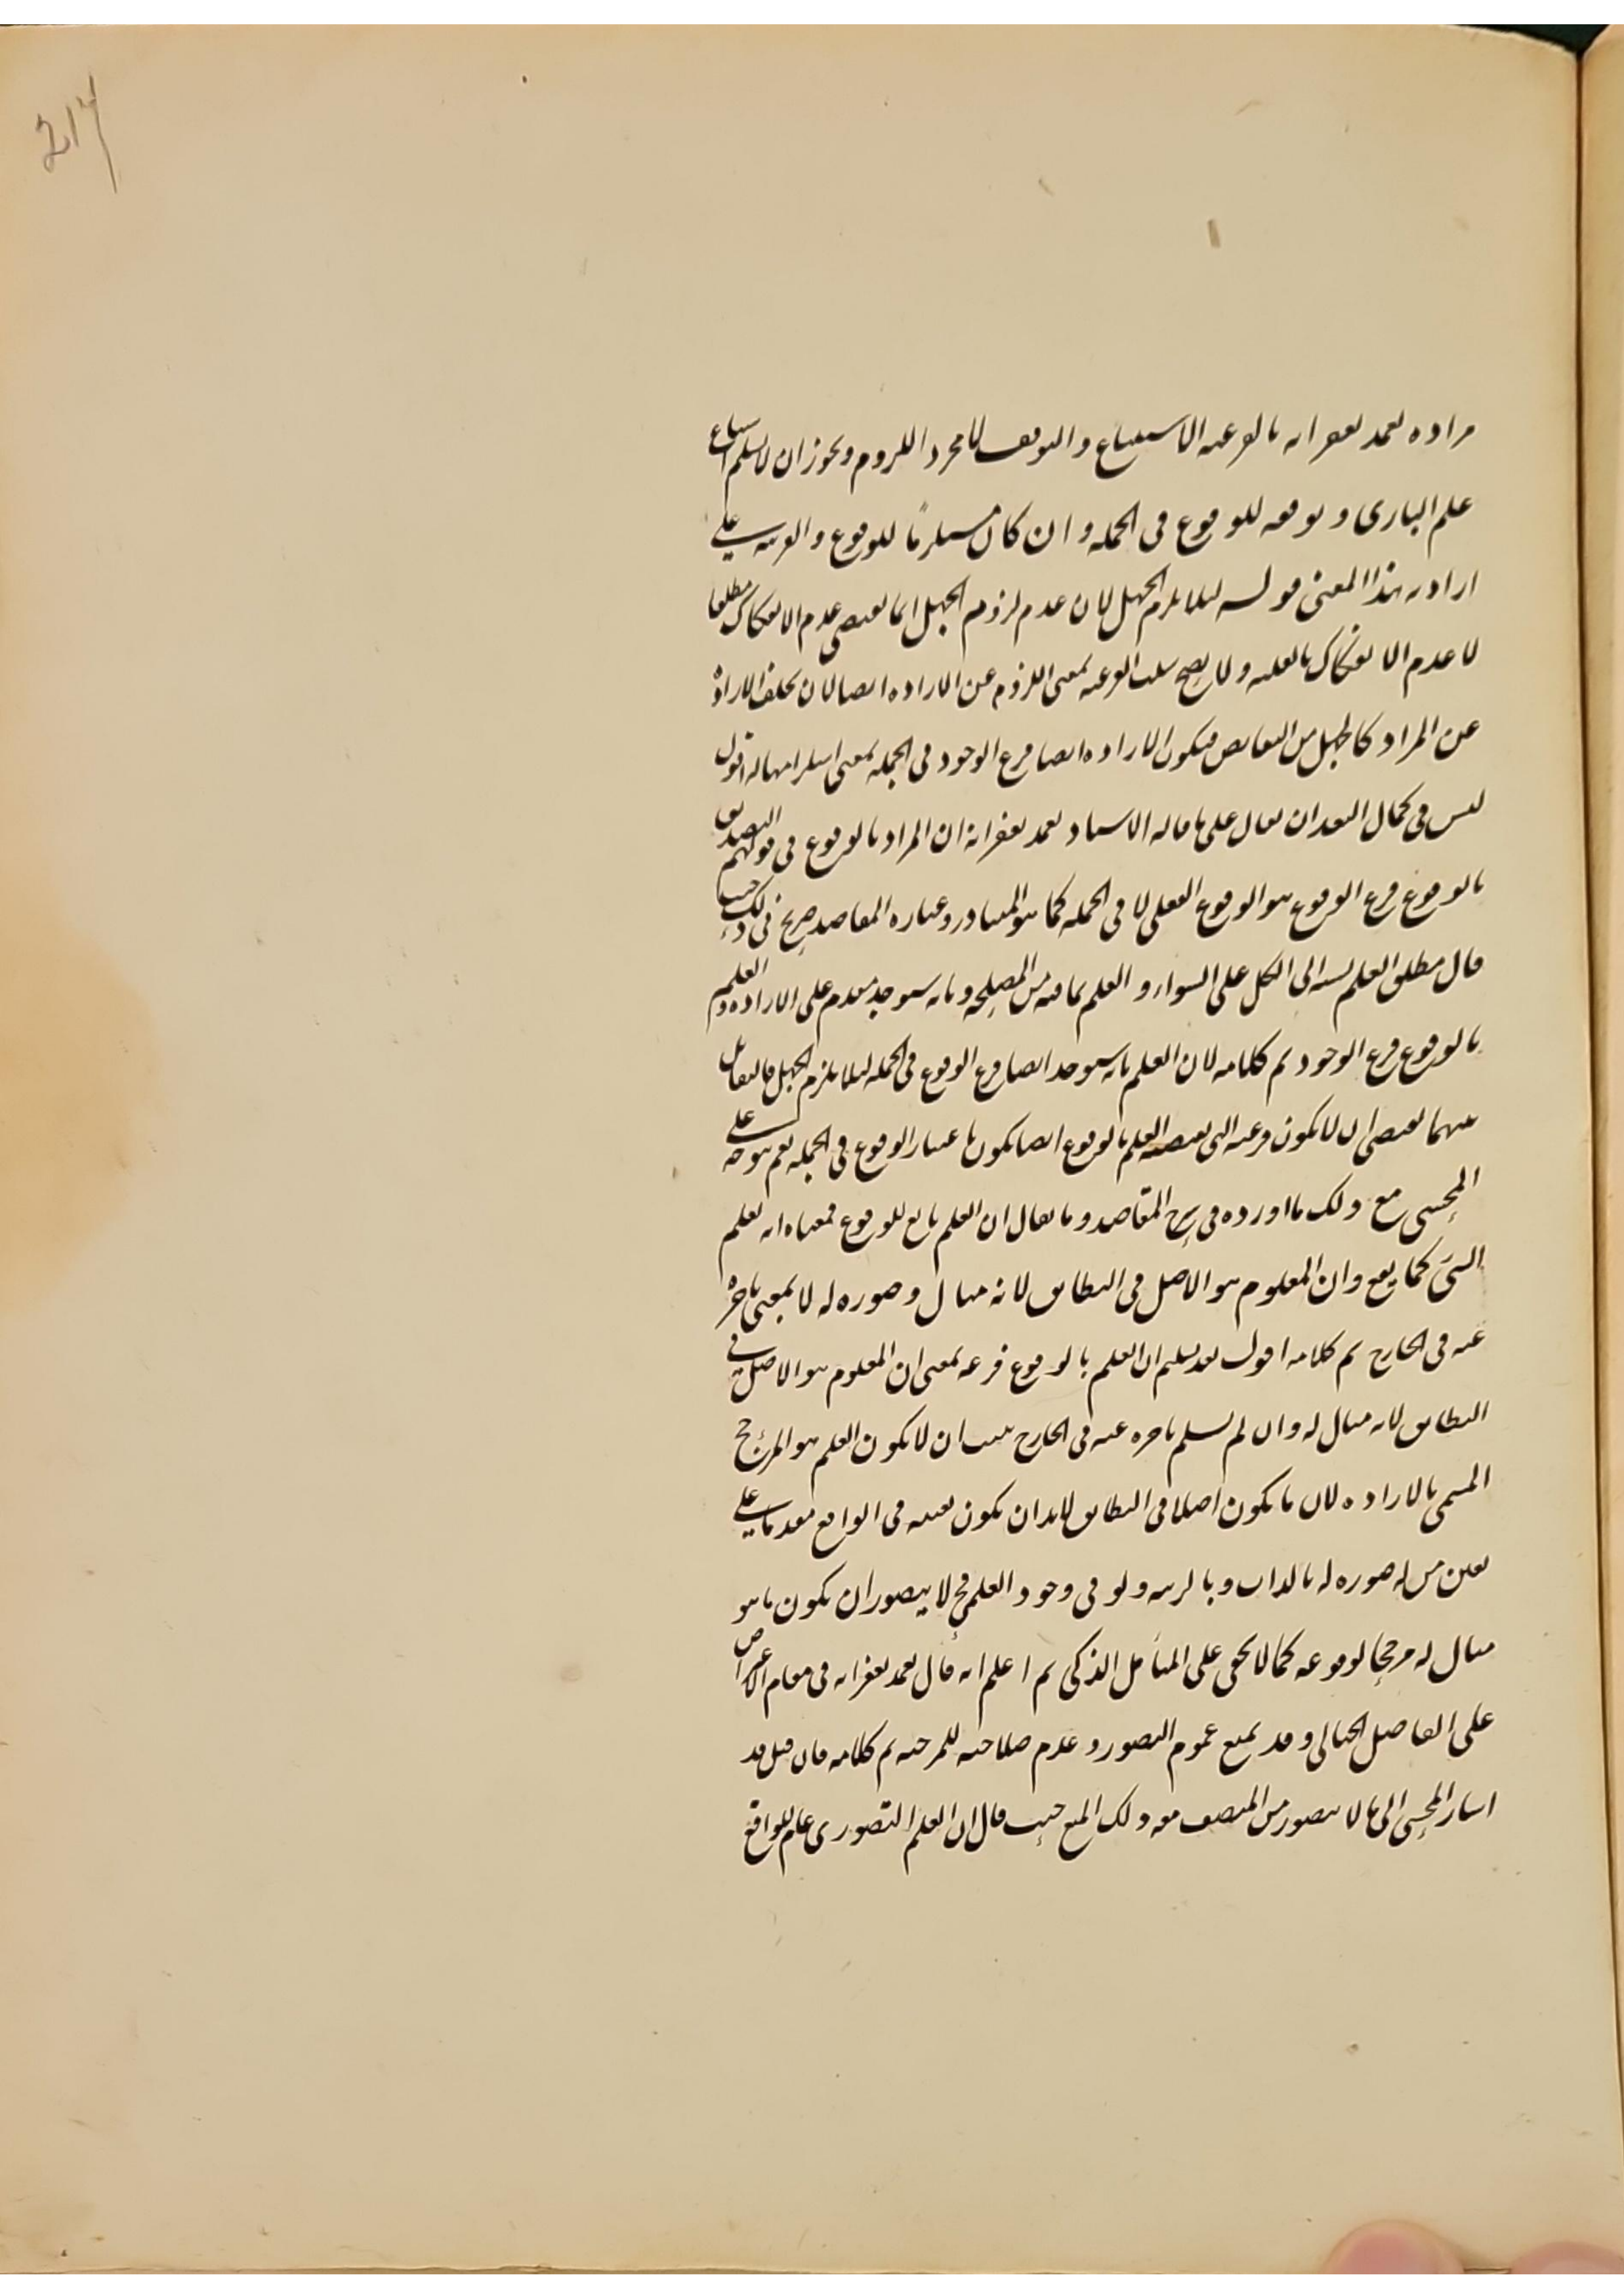 217
مراده تغمد بغفرانه بالفرعية الاستتباع والتوقف لا مجرد اللزوم ويجوز ان لا يسلم استتباع
علم الباري وتوقفه للوقوع في الجملة وان كان مستلزمًا للوقوع والقرينة على
ارادته هذا المعنى قوله لئلا يلزم الجهل لان عدم لزوم الجهل انما يقتضي عدم الانفكاك مطلقا
لا عدم الانفكاك بالعلية ولا يصح سلب الفرعية بمعنى اللزوم عن الارادة ايضا لان تخلف الارادة
عن المراد كالجهل من النقايص فيكون الارادة ايضا فرع الوجود في الجملة بمعنى استلزامها له اقول
ليس في كمال البعد ان يقال على ما قاله الاستاد تغمد بغفرانه ان المراد بالوقوع في قولهم التصديق
بالوقوع فرع الوقوع هو الوقوع الفعلي لا في الجملة كما هو المتبادر وعبارة المقاصد صريح في ذلك حيث
قال مطلق العلم نسبته الى الكل على السواء والعلم بما فيه من المصلحة وبانه سيوجد مقدم على الارادة والعلم
بالوقوع فرع الوجود تم كلامه لان العلم بانه سيوجد ايضا فرع الوقوع في الجملة لئلا يلزم الجهل فالتقابل
بينهما يقتضي ان لا يكون فرعيته التي يقتضيه العلم بالوقوع ايضا يكون باعتبار الوقوع في الجملة نعم يتوجه على
المحشي مع ذلك ما اورده في شرح المقاصد وما يقال ان العلم تابع للوقوع فمعناه انه يعلم
الشيء كما يقع وان المعلوم هو الاصل في التطابق لانه مثال وصورة له لا بمعنى تاخره
عنه في الخارج تم كلامه اقول بعد تسليم ان العلم بالوقوع فرعه بمعنى ان المعلوم هو الاصل في
التطابق لانه مثال له وان لم نسلم تاخره عنه في الخارج يثبت ان لا يكون العلم هو المرجح
المسمى بالارادة لان ما يكون اصلا في التطابق لابد ان يكون تعينه في الواقع مقدما على
تعين من له صورة له بالذات وبالرتبة ولو في وجود العلم فح لا يتصور ان يكون ما هو
مثال له مرجحا لوقوعه كما لا يخفى على المتأمل الذكي ثم اعلم انه قال تغمد بغفرانه في مقام الاعتراض
على الفاضل الخيالي وقد يمنع عموم التصور وعدم صلاحيته للمرجحية تم كلامه فان قيل قد
اشار المحشي الى ما لا يتصور من المنصف معه ذلك المنع حيث قال ان العلم التصوري عام للواقع